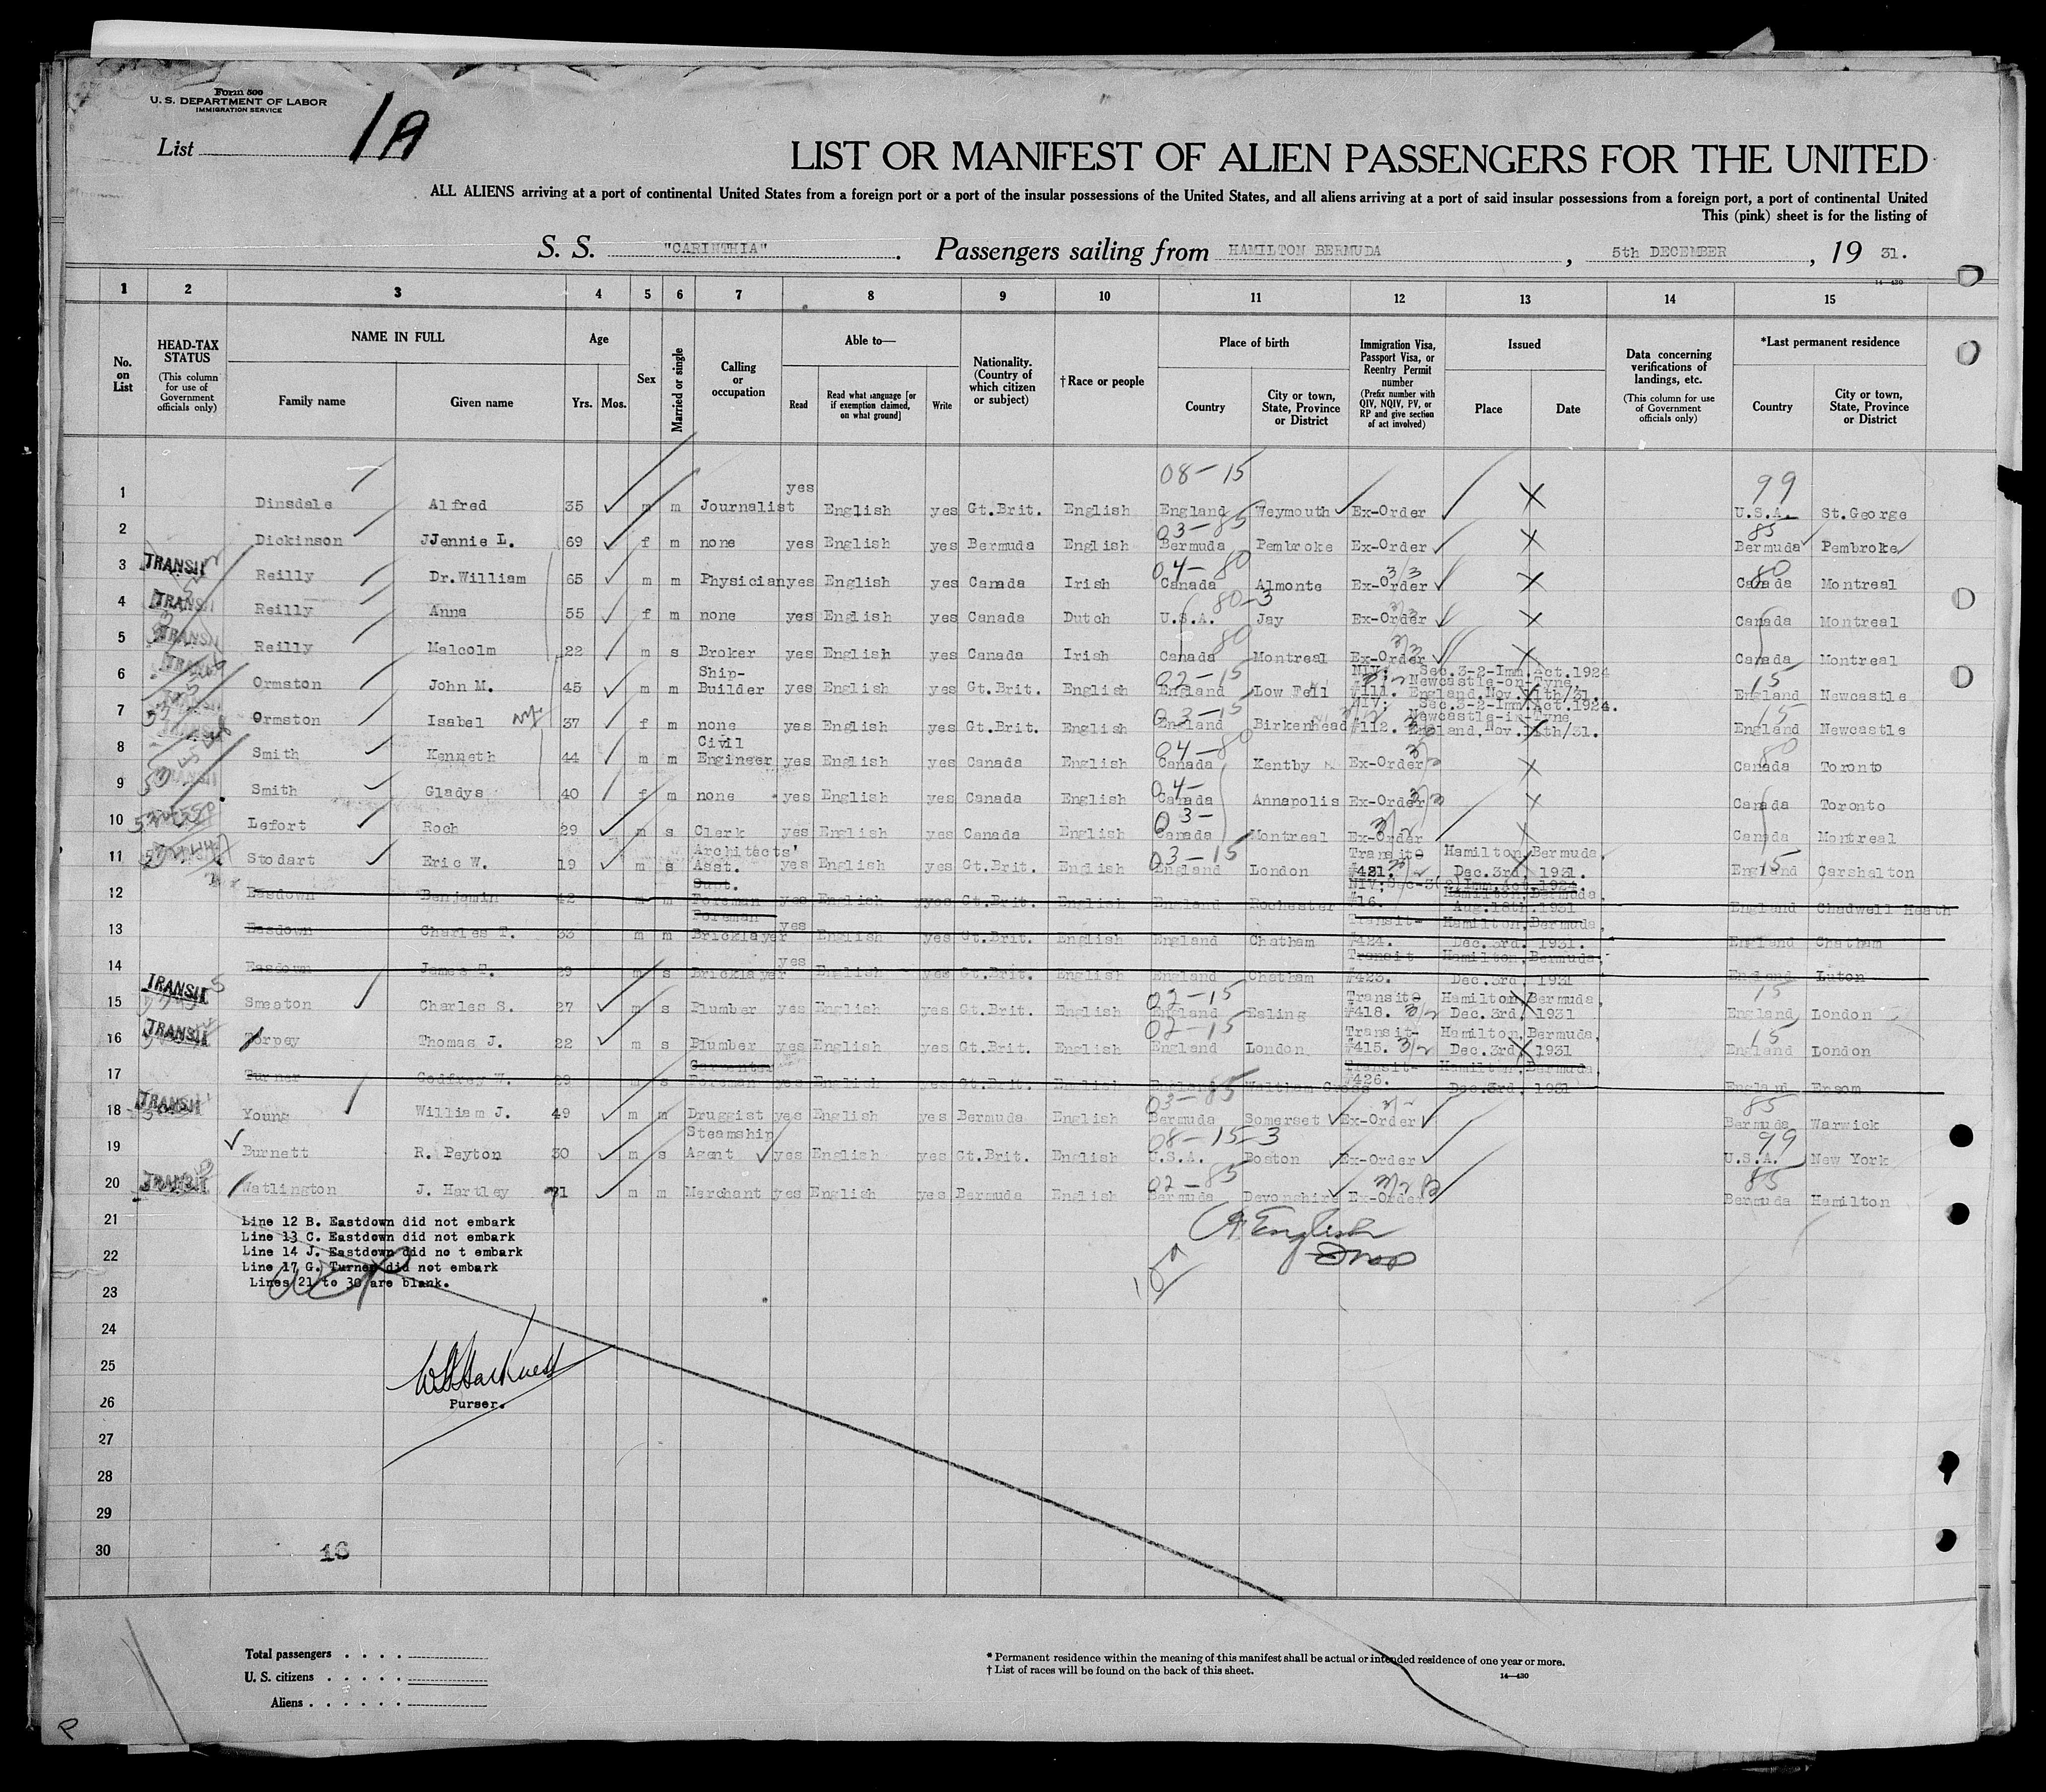 Form 500
U. S. DEPARTMENT OF LABOR
IMMIGRATION SERVICE
List 1A
LIST OR MANIFEST OF ALIEN PASSENGERS FOR THE UNITED
ALL ALIENS arriving at a port of continental United States from a foreign port or a port of the insular possessions of the United States, and all aliens arriving at a port of said insular possessions from a foreign port, a port of continental United
This (pink) sheet is for the listing of
S. S. "CARINTHIA". Passengers sailing from HAMILTON BERMUDA, 5th DECEMBER, 19 31.
14—430
1 2 3 4 5 6 7 8 9 10 11 12 13 14 15
No. on List
HEAD-TAX STATUS (This column for use of Government officials only)
NAME IN FULL Family name Given name
Age Yrs. Mos.
Sex
Married or single
Calling or occupation
Able to— Read Read what language [or if exemption claimed, on what ground] Write
Nationality. (Country of which citizen or subject)
†Race or people
Place of birth Country City or town, State, Province or District
Immigration Visa, Passport Visa, or Reentry Permit number (Prefix number with QIV, NQIV, PV, or RP and give section of act involved)
Issued Place Date
Data concerning verifications of landings, etc. (This column for use of Government officials only)
*Last permanent residence Country City or town, State, Province or District
08-15 99
1 Dinsdale Alfred 35 m m Journalist yes English yes Gt.Brit. English England Weymouth Ex-Order U.S.A. St.George
03-85 85
2 Dickinson JJennie L. 69 f m none yes English yes Bermuda English Bermuda Pembroke Ex-Order Bermuda Pembroke
04-80 3/3 80
3 TRANSIT Reilly Dr.William 65 m m Physician yes English yes Canada Irish Canada Almonte Ex-Order Canada Montreal
80-3
4 TRANSIT Reilly Anna 55 f m none yes English yes Canada Dutch U.S.A. Jay Ex-Order Canada Montreal
80
5 TRANSIT Reilly Malcolm 22 m s Broker yes English yes Canada Irish Canada Montreal Ex-Order Canada Montreal
02-15 15
6 TRANSIT Ormston John M. 45 m m Ship-Builder yes English yes Gt.Brit. English England Low Fell NIV; Sec.3-2-Imm.Act.1924 #111. Newcastle-on-Tyne, England.Nov.11th/31. England Newcastle
03-15 15
7 Ormston Isabel 37 f m none yes English yes Gt.Brit. English England Birkenhead NIV; Sec.3-2-Imm.Act.1924. #112. Newcastle-in-Tyne England,Nov.11th/31. England Newcastle
04-80 80
8 Smith Kenneth 44 m m Civil Engineer yes English yes Canada English Canada Kentby Ex-Order Canada Toronto
04-
9 Smith Gladys 40 f m none yes English yes Canada English Canada Annapolis Ex-Order Canada Toronto
03-
10 Lefort Roch 29 m s Clerk yes English yes Canada English Canada Montreal Ex-Order Canada Montreal
03-15 15
11 Stodart Eric W. 19 m s Architects' Asst. yes English yes Gt.Brit. English England London Transit #421. Hamilton,Bermuda, Dec.3rd, 1931. England Carshalton
12 Easdown Benjamin 42 m m Supt. Foreman yes English yyes Gt.Brit. English England Rochester NIV;Sec-3(2)Imm.Act.1924. #16. Hamilton,Bermuda, Aug.18th.1931 England Chadwell Heath
13 Easdown Charles T. 33 m m Foreman Bricklayer yes English yes Gt.Brit. English England Chatham Transit- #424. Hamilton,Bermuda, Dec.3rd, 1931. England Chatham
14 Easdown James T. 29 m s Bricklayer yes English yes Gt.Brit. English England Chatham Transit #423. Hamilton,Bermuda, Dec.3rd, 1931 England Luton
02-15 15
15 TRANSIT Smeaton Charles S. 27 m s Plumber yes English yes Gt.Brit. English England Ealing Transit #418. Hamilton,Bermuda, Dec.3rd, 1931 England London
02-15 15
16 TRANSIT Torpey Thomas J. 22 m s Plumber yes English yes Gt.Brit. English England London Transit- #415. Hamilton,Bermuda, Dec.3rd, 1931 England London
17 Turner Godfrey W. 29 m s Foreman yes English yes Gt.Brit. English England Waltham Cross Transit- #426. Hamilton,Bermuda, Dec.3rd, 1931 England
03-85 85
18 TRANSIT Young William J. 49 m m Druggist yes English yes Bermuda English Bermuda Somerset Ex-Order Bermuda Warwick
08-15-3 99
19 Burnett R. Peyton 30 m s Steamship Agent yes English yes Gt.Brit. English U.S.A. Boston Ex-Order U.S.A. New York
02-85 85
20 TRANSIT Watlington J. Hartley 71 m m Merchant yes English yes Bermuda English Bermuda Devonshire Ex-Order Bermuda Hamilton
21 Line 12 B. Eastdown did not embark
Line 13 C. Eastdown did not embark
22 Line 14 J. Eastdown did no t embark
Line 17 G. Turner did not embark
Lines 21 to 30 are blank.
English
23
24
25
26 Purser.
27
28
29
30 16
Total passengers . . . .
U. S. citizens . . . . .
Aliens . . . . . .
* Permanent residence within the meaning of this manifest shall be actual or intended residence of one year or more.
† List of races will be found on the back of this sheet.
14—430
P